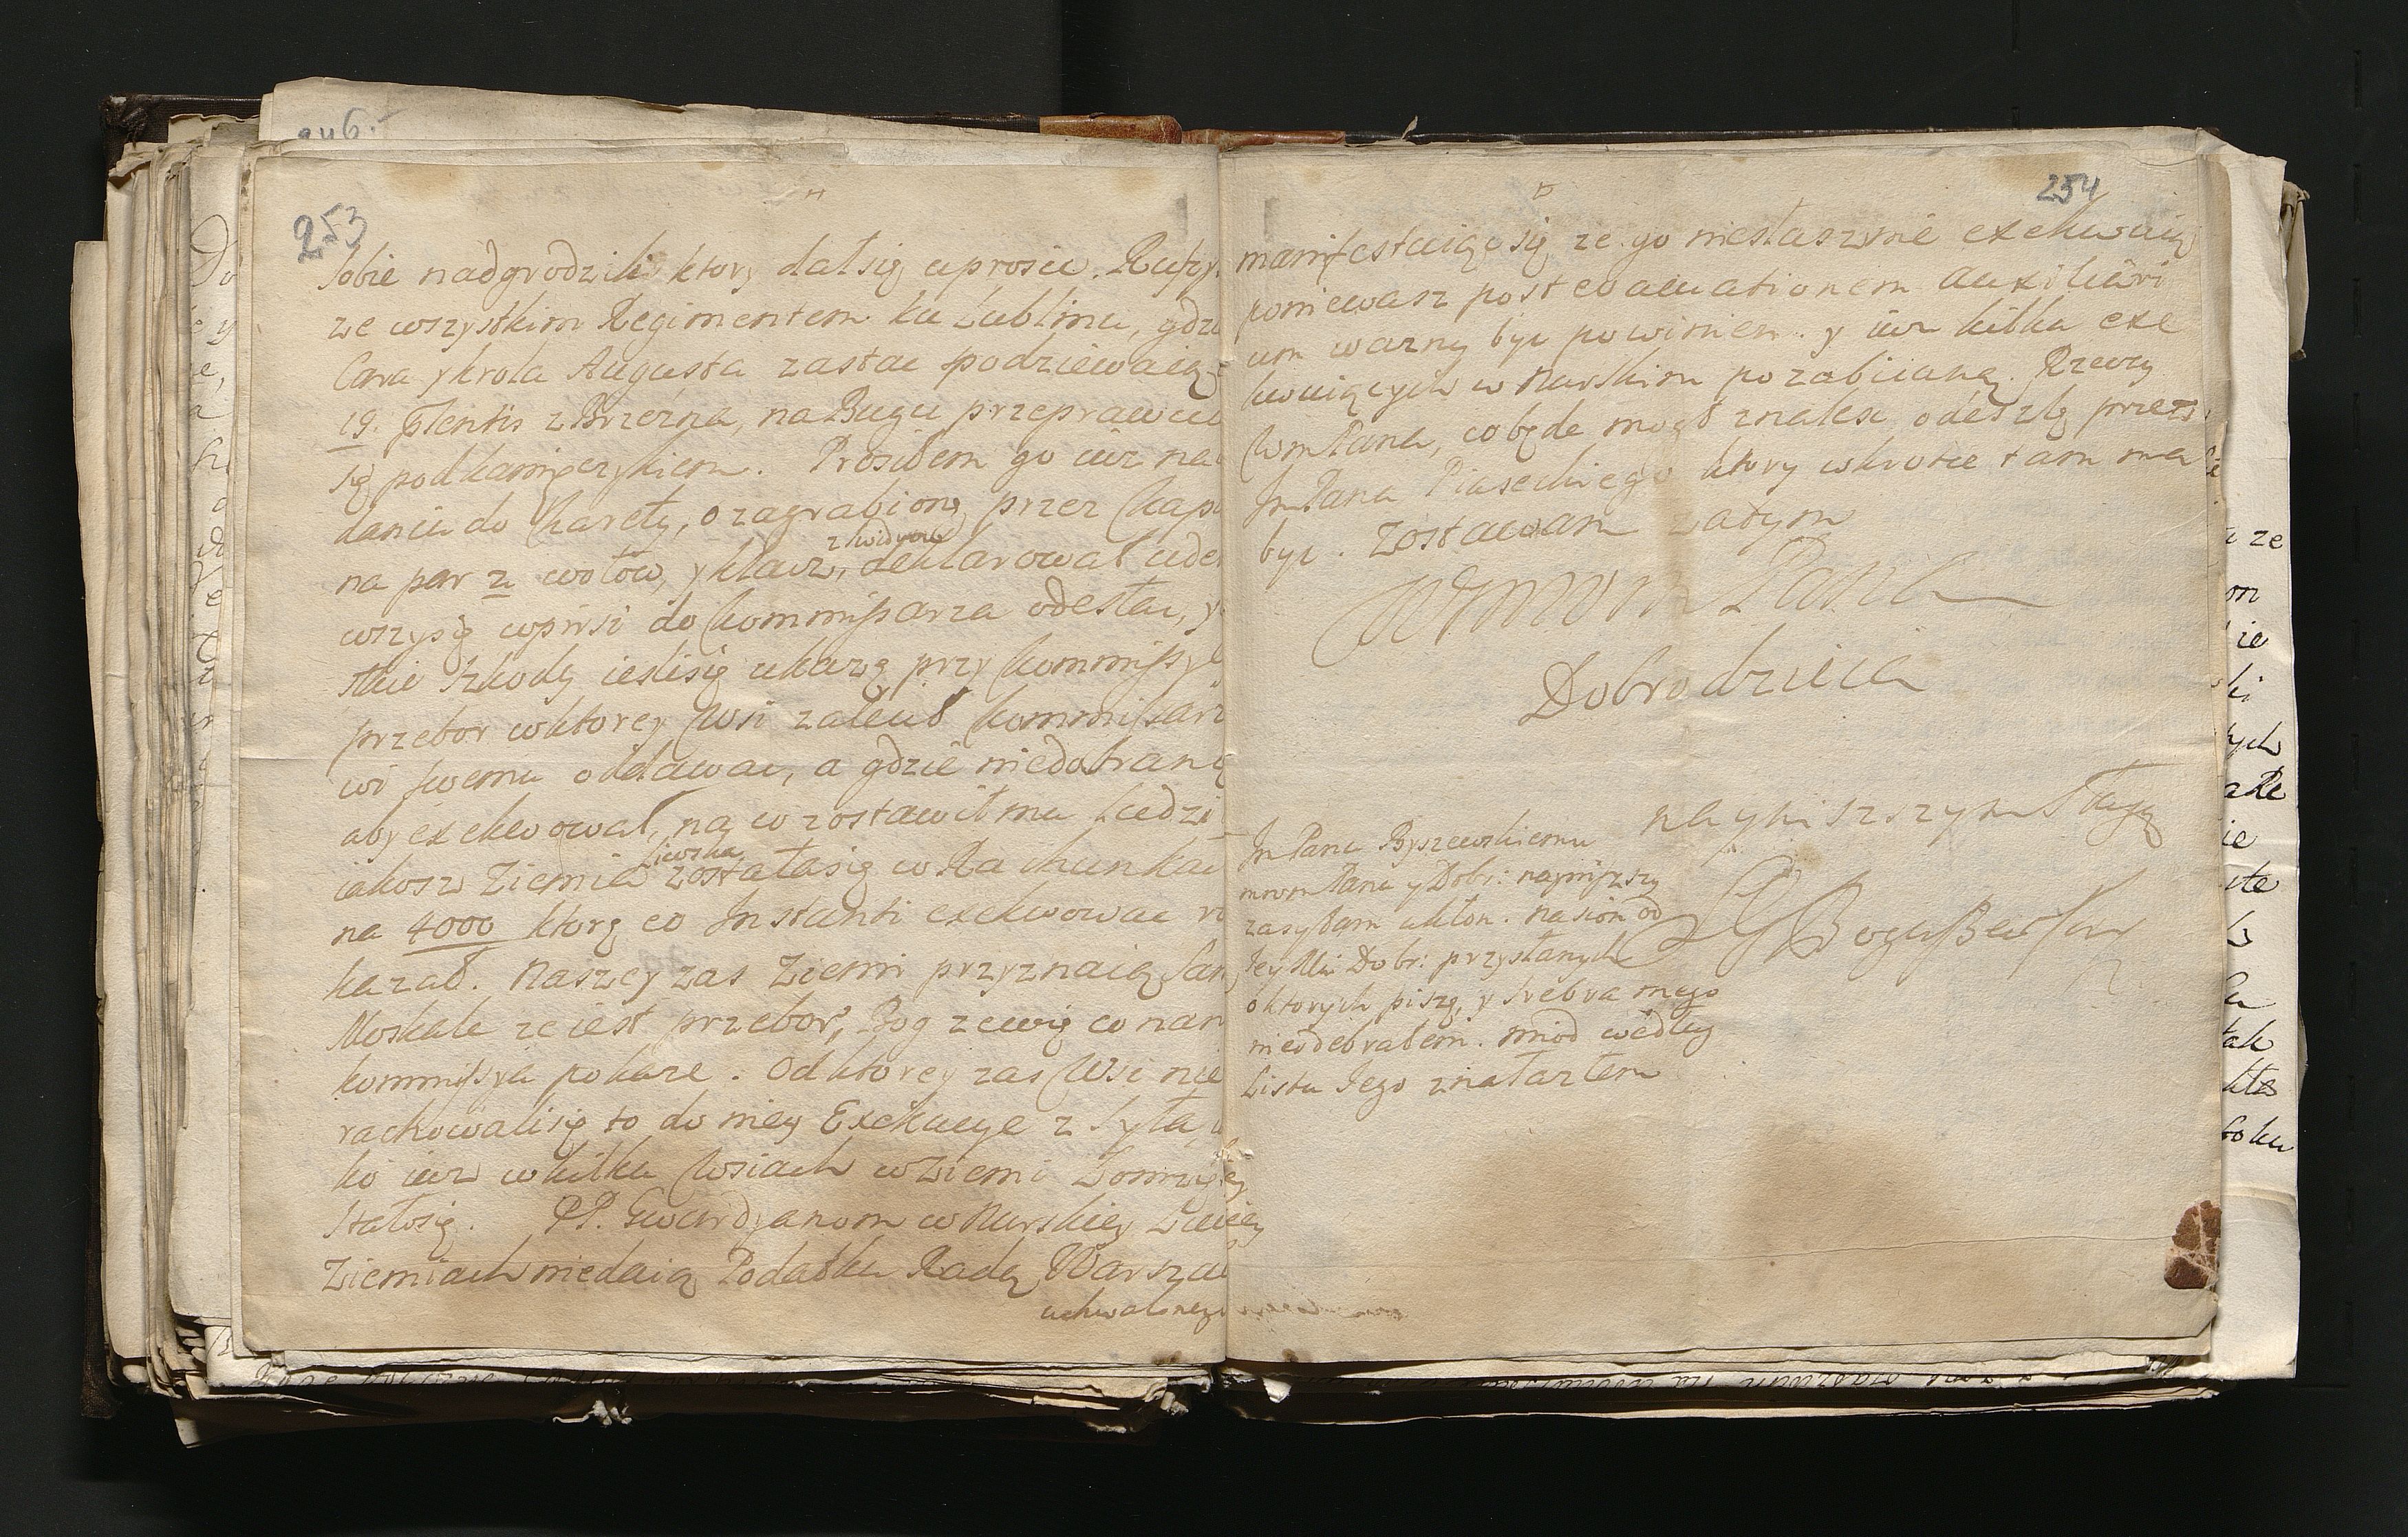 253
sobie nadgrodzili ktory dał się uprosic.
ze wszystkim Regimentem ku Lublinu, gdzie
Cara y krola Augusta zastac spodziewaią
19. pntis z Brzezna, na Bugu przeprawui
się pod kamięczykiem. Prosiłem go iuz na
daniu do Karety, o zagrabioną przez kap
na par 2 wołow, y klacz, z kidyow deklarowal
do kommissarza odesłac, y
skie szkody ieslisię ukazą przy kommissyi
przebor w ktorey wsi zalecił kommissarz
wi swemu oddawac, a gdzie niedobrano
aby exekwował, na co zostawił mu ludzi
iakosz Ziemia Liwska zostałasię w Rachunkach
na 4000 ktorą eo Instanti exekwowac
kazał. Naszey zas Ziemi przyznaią sami
Moskale ze iest przebor, Bog ze wię co nam
kommissya pokaze. Od ktorey zas Wsi nie
rachowalisię to do niey Exekucye zsyła,
ko iuz w kilku wsiach w Ziemi Łomzyskiey
stałosię. PP. Gwardyanom w Nurskiey Liwskiey
Ziemiach niedaią Podatku Radą Warszaw
uchwalonego
254
manifestuiąc się ze go niesłusznie exekwuią
poniewasz post evacuationem auxiliari
um wazny byc powinien. y iuz kilku exe
kwuiących w Nurskim pozabiiano. Rzeczy
Wm Pana, co będe mogł znalesc odeszlę przez
Jm Pana Piaseckiego ktory wkrotce tam ma
byc. Zostawam zatym
WMM Pana
Dobrodzieia
nayniszszym sługą
Jm Panu Byszewskiemu
mmm Panu y Dobr: nayniszszy
zasyłam ukłon. Nasion od
Jey Mci Dobr: przysłanych
o ktorych piszę, y srebra mego
nieodebrałem. miod według
Listu Jego znalazłem